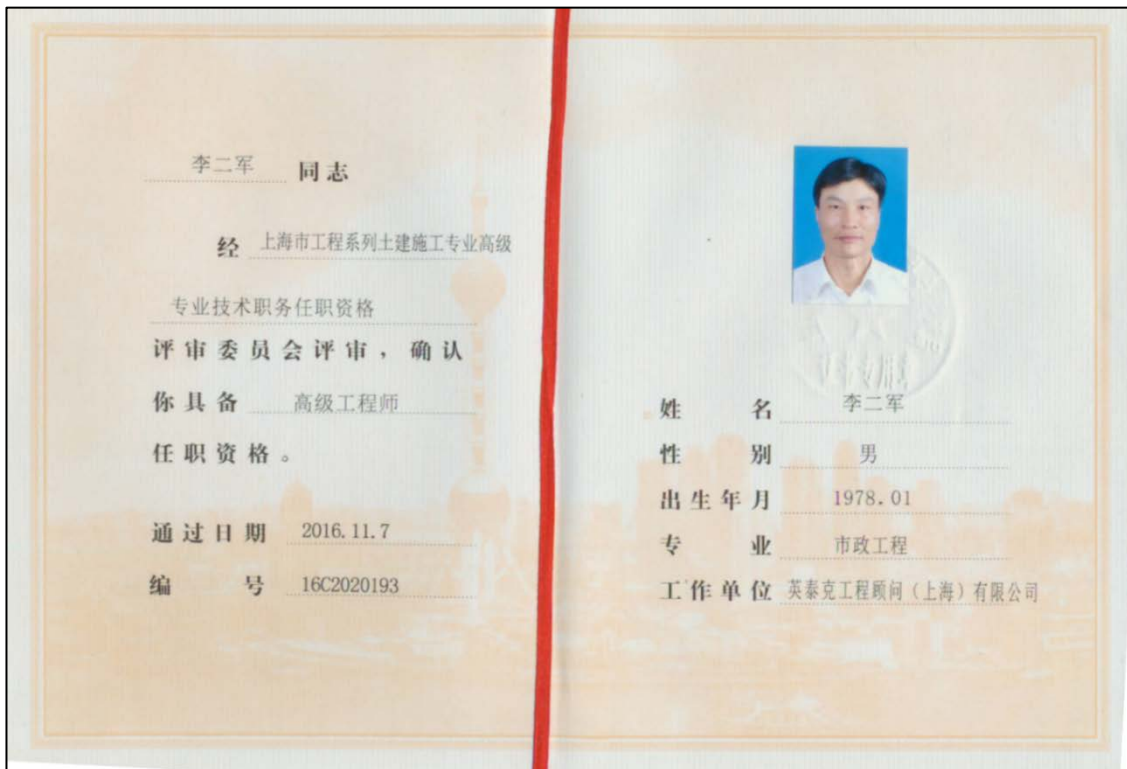 李二军 同志
经 上海市工程系列土建施工专业高级
专业技术职务任职资格
评审委员会评审，确认
你具备 高级工程师
任职资格。
通过日期 2016.11.7
编 号 16C2020193
证书专用章
姓 名 李二军
性 别 男
出生年月 1978.01
专 业 市政工程
工作单位 英泰克工程顾问（上海）有限公司